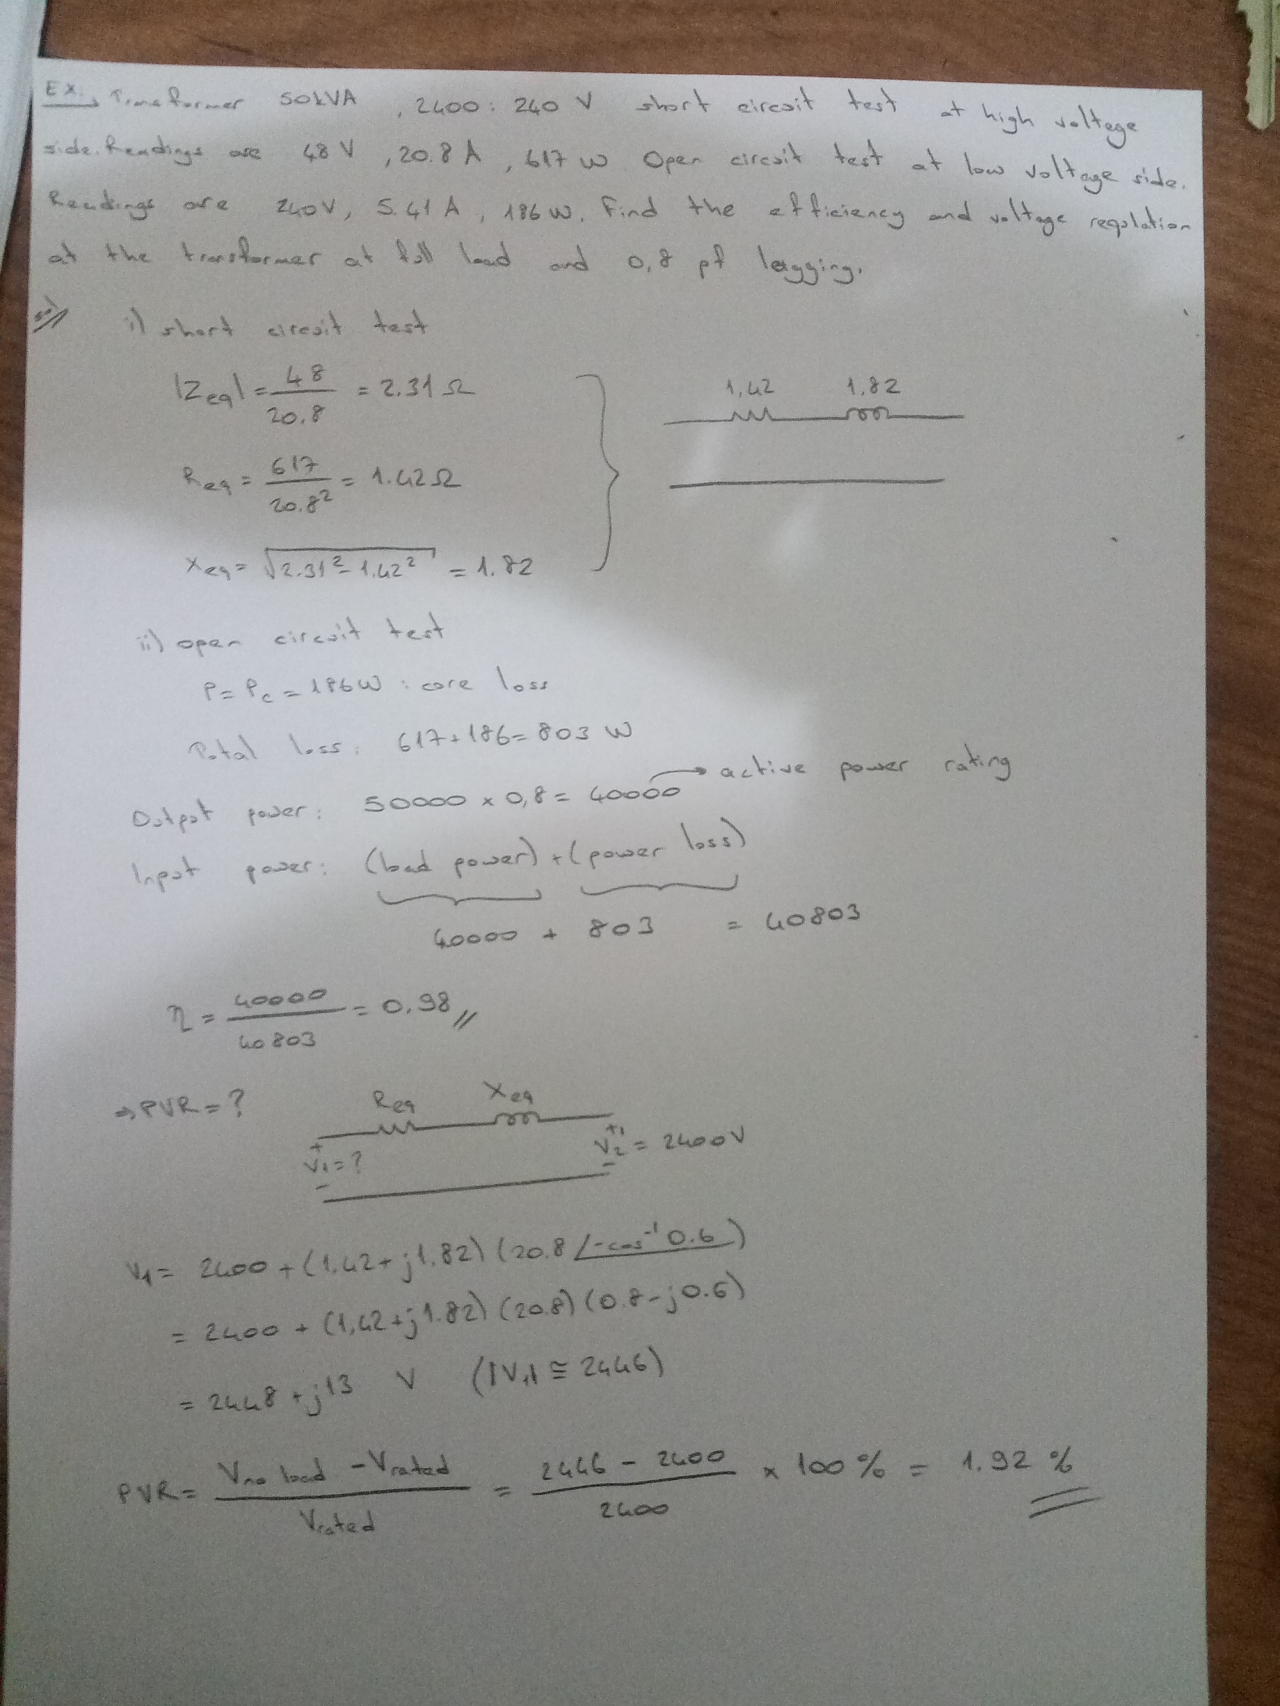 Ex. Transformer 50kVA, 2400:240 V short circuit test at high voltage
side. Readings are 48 V, 20.8 A, 617 W Open circuit test at low voltage side.
Readings are 240V, 5.41 A, 186 W. Find the efficiency and voltage regulation
at the transformer at full load and 0,8 pf lagging.
i) short circuit test
|Zeq| = 48/20.8 = 2.31 Ω
1,42 1,82
Req = 617/20.8² = 1.42 Ω
Xeq = √(2.31² - 1.42²) = 1.82
ii) open circuit test
P = Pc = 186W : core loss
Total loss: 617+186 = 803 W
Output power: 50000 x 0,8 = 40000 → active power rating
Input power: (load power) + (power loss)
40000 + 803 = 40803
η = 40000/40803 = 0.98 //
⇒ PVR = ?
Req Xeq
+ V1 = ? - + V2' = 2400V -
V1 = 2400 + (1,42 + j1.82) (20.8 ∠-cos⁻¹ 0.6)
= 2400 + (1,42 + j1.82) (20.8) (0.8 - j0.6)
= 2448 + j13 V (|V1| ≅ 2446)
PVR = (Vno load - Vrated)/Vrated = (2446 - 2400)/2400 x 100 % = 1.92 %